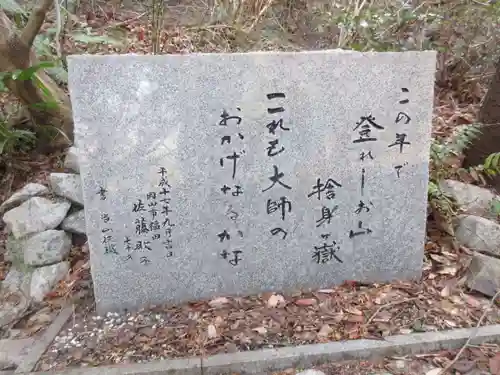 この年で
登れしお山
捨身ヶ嶽
これも大師の
おかげなるかな
平成十七年九月吉日
岡山市福田
佐藤歌子